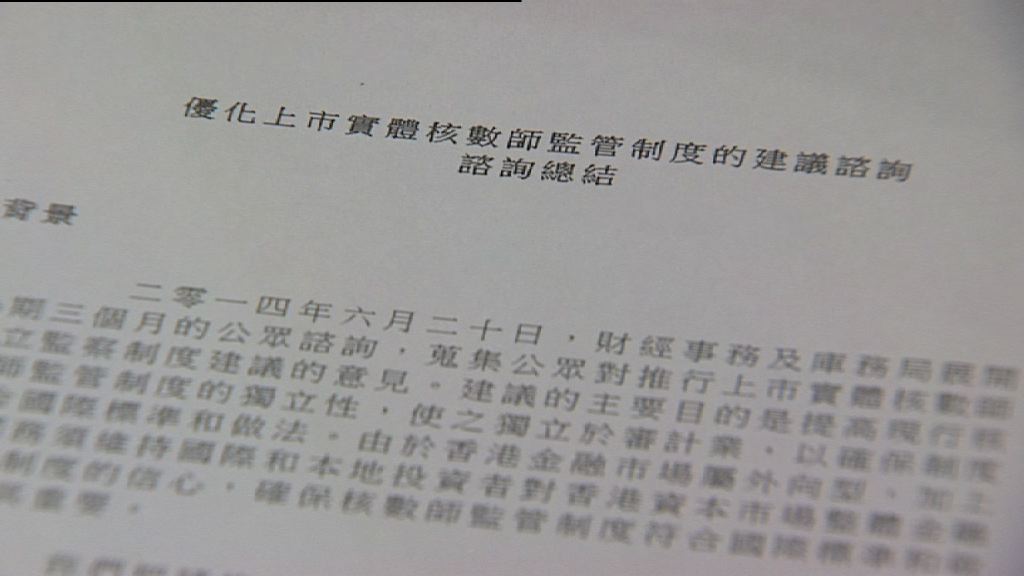 優化上市實體核數師監管制度的建議諮詢
諮詢總結
背景
二零一四年六月二十日，財經事務及庫務局展開
期三個月的公眾諮詢，蒐集公眾對推行上市實體核數師
立監察制度建議的意見。建議的主要目的是提高現行核
師監管制度的獨立性，使之獨立於審計業，以確保制度
國際標準和做法。由於香港金融市場屬外向型，加上
務須維持國際和本地投資者對香港資本市場整體金融
制度的信心，確保核數師監管制度符合國際標準和
重要。
我們